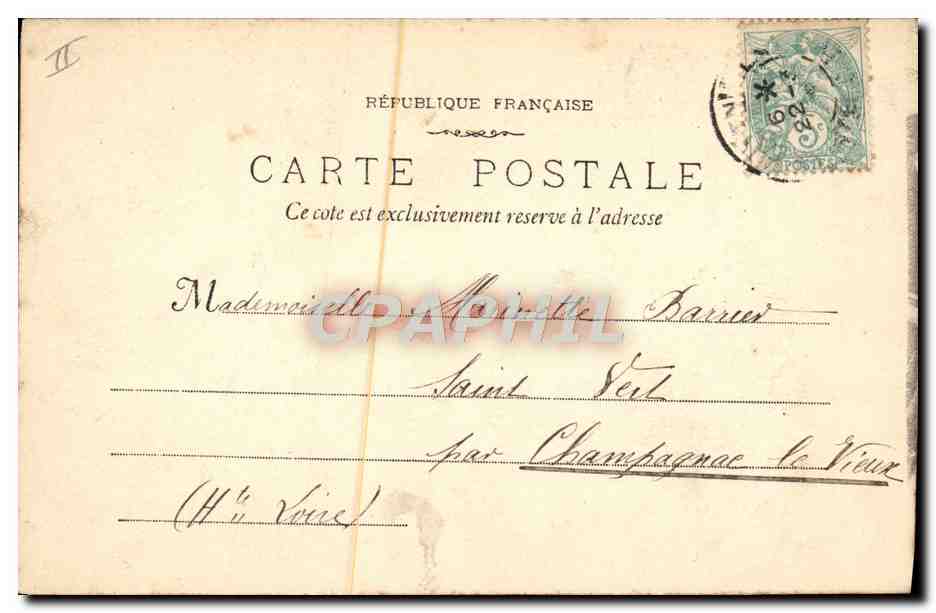 II
RÉPUBLIQUE FRANÇAISE
CARTE POSTALE
Ce cote est exclusivement reserve à l'adresse
5c
POSTES
6 *
22 -
Mademoiselle Marinette Barrier
CPAPHIL
Saint Vert
par Champagnac le Vieux
(Hte Loire)